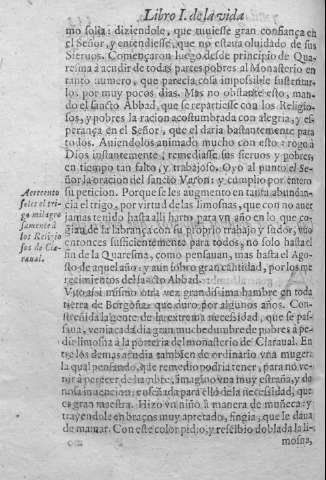 Libro I. de la vida
mo solia: diziendole, que tuuiesse gran confiança en
el Señor, y entendiesse, que no estaua oluidado de sus
Sieruos. Començaron luego desde principio de Qua-
resma a acudir de todas partes pobres al Monasterio en
tanto numero, que parecia cosa impossible sustentar-
los por muy pocos dias. Mas no obstante esto, man-
do el sancto Abbad, que se repartiesse con los Religio-
sos, y pobres la racion acostumbrada con alegria, y es-
perança en el Señor, que el daria bastantemente para
todos. Auiendolos animado mucho con esto: rogò à
Dios instantemente, remediasse sus sieruos y pobres,
en tiempo tan falto, y trabajoso. Oyo al punto el Se-
ñor la oracion del sancto Varon: y cumplio por entero
su peticion. Porque se les augmento en tanta abundan-
cia el trigo, por virtud de las limosnas, que con no auer
jamas tenido hasta alli harto para vn año en lo que co-
gian de la labrança con su proprio trabajo y sudor, vuo
entonces sufficientemente para todos, no solo hasta el
fin de la Quaresma, como pensauan, mas hasta el Agos-
to de aquel año: y aun sobro gran cantidad, por los me-
recimientos del sancto Abbad.
Vuo assi mismo otra vez grandissima hambre en toda
tierra de Borgoña: que duro por algunos años. Con-
streñida la gente de la extrema necessidad, que se pas-
saua, venia cada dia gran muchedumbre de pobres à pe-
dir limosna à la porteria del monasterio de Claraual. En-
tre los demas acudia tambien de ordinario vna muger:
la qual pensando, que remedio podria tener, para no ve-
nir à perecer de hambre, imagino vna muy estraña, y do-
nosa inuencion: enseñada para ello de la necessidad, que
es gran maestra. Hizo vn niño à manera de muñeca: y
trayendole en braços muy apretado, fingia, que le daua
de mamar. Con este color pidio, y rescibio doblada la li-
mosna,
Acrecento
seles el tri-
go milagro
samente à
los Religio
sos de Cla-
raual.